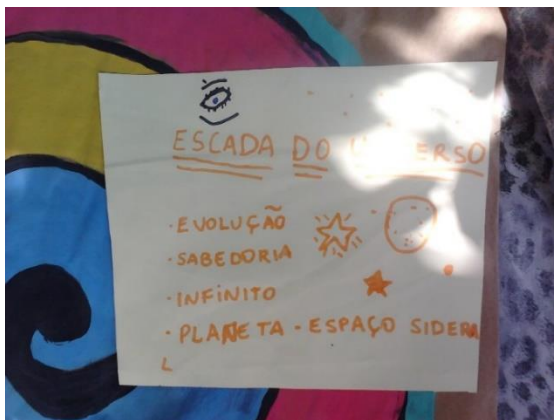 ESCADA DO UNIVERSO
· EVOLUÇÃO
· SABEDORIA
· INFINITO
· PLANETA · ESPAÇO SIDERA
L